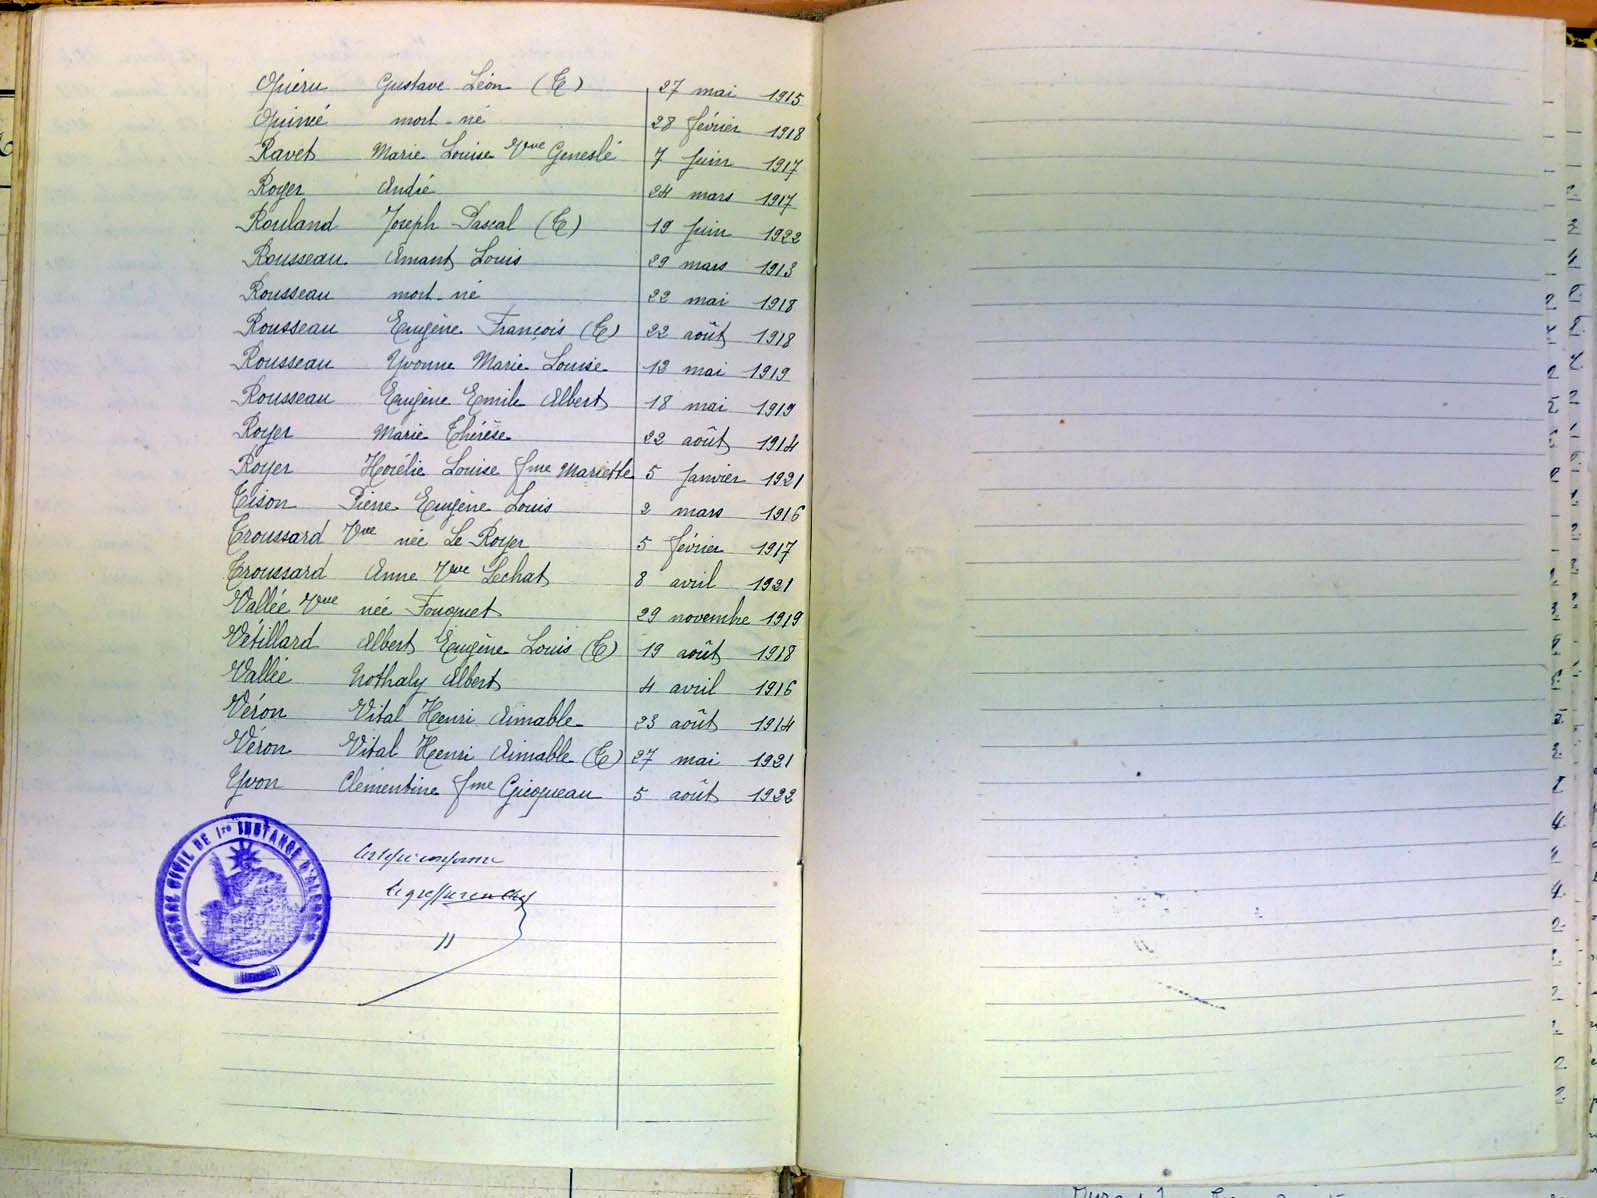 Gustave Léon (T) 27 mai 1915
mort-né 28 février 1918
Ravet Marie Louise Vve Geneslé 7 juin 1917
Royer André 24 mars 1917
Rouland Joseph Pascal (T) 19 juin 1922
Rousseau Amant Louis 29 mars 1913
Rousseau mort-né 22 mai 1918
Rousseau Eugène François (T) 22 août 1918
Rousseau Yvonne Marie Louise 13 mai 1919
Rousseau Eugène Emile Albert 18 mai 1919
Royer Marie Thérèse 22 août 1914
Royer Louise fme Mariette 5 janvier 1921
Tison Pierre Eugène Louis 2 mars 1916
Troussard Vve née Le Royer 5 février 1917
Troussard Anne Vve Lechat 8 avril 1921
Vallée Vve née Fouquet 29 novembre 1919
Vétillard Albert Eugène Louis (T) 19 août 1918
Vallée Nothaly Albert 4 avril 1916
Véron Vital Henri Aimable 23 août 1914
Véron Vital Henri Aimable (T) 27 mai 1921
Yvon Clémentine fme Gicqueau 5 août 1922
TRIBUNAL CIVIL DE 1re INSTANCE D'ALENÇON
Certifié conforme
Le greffier en chef